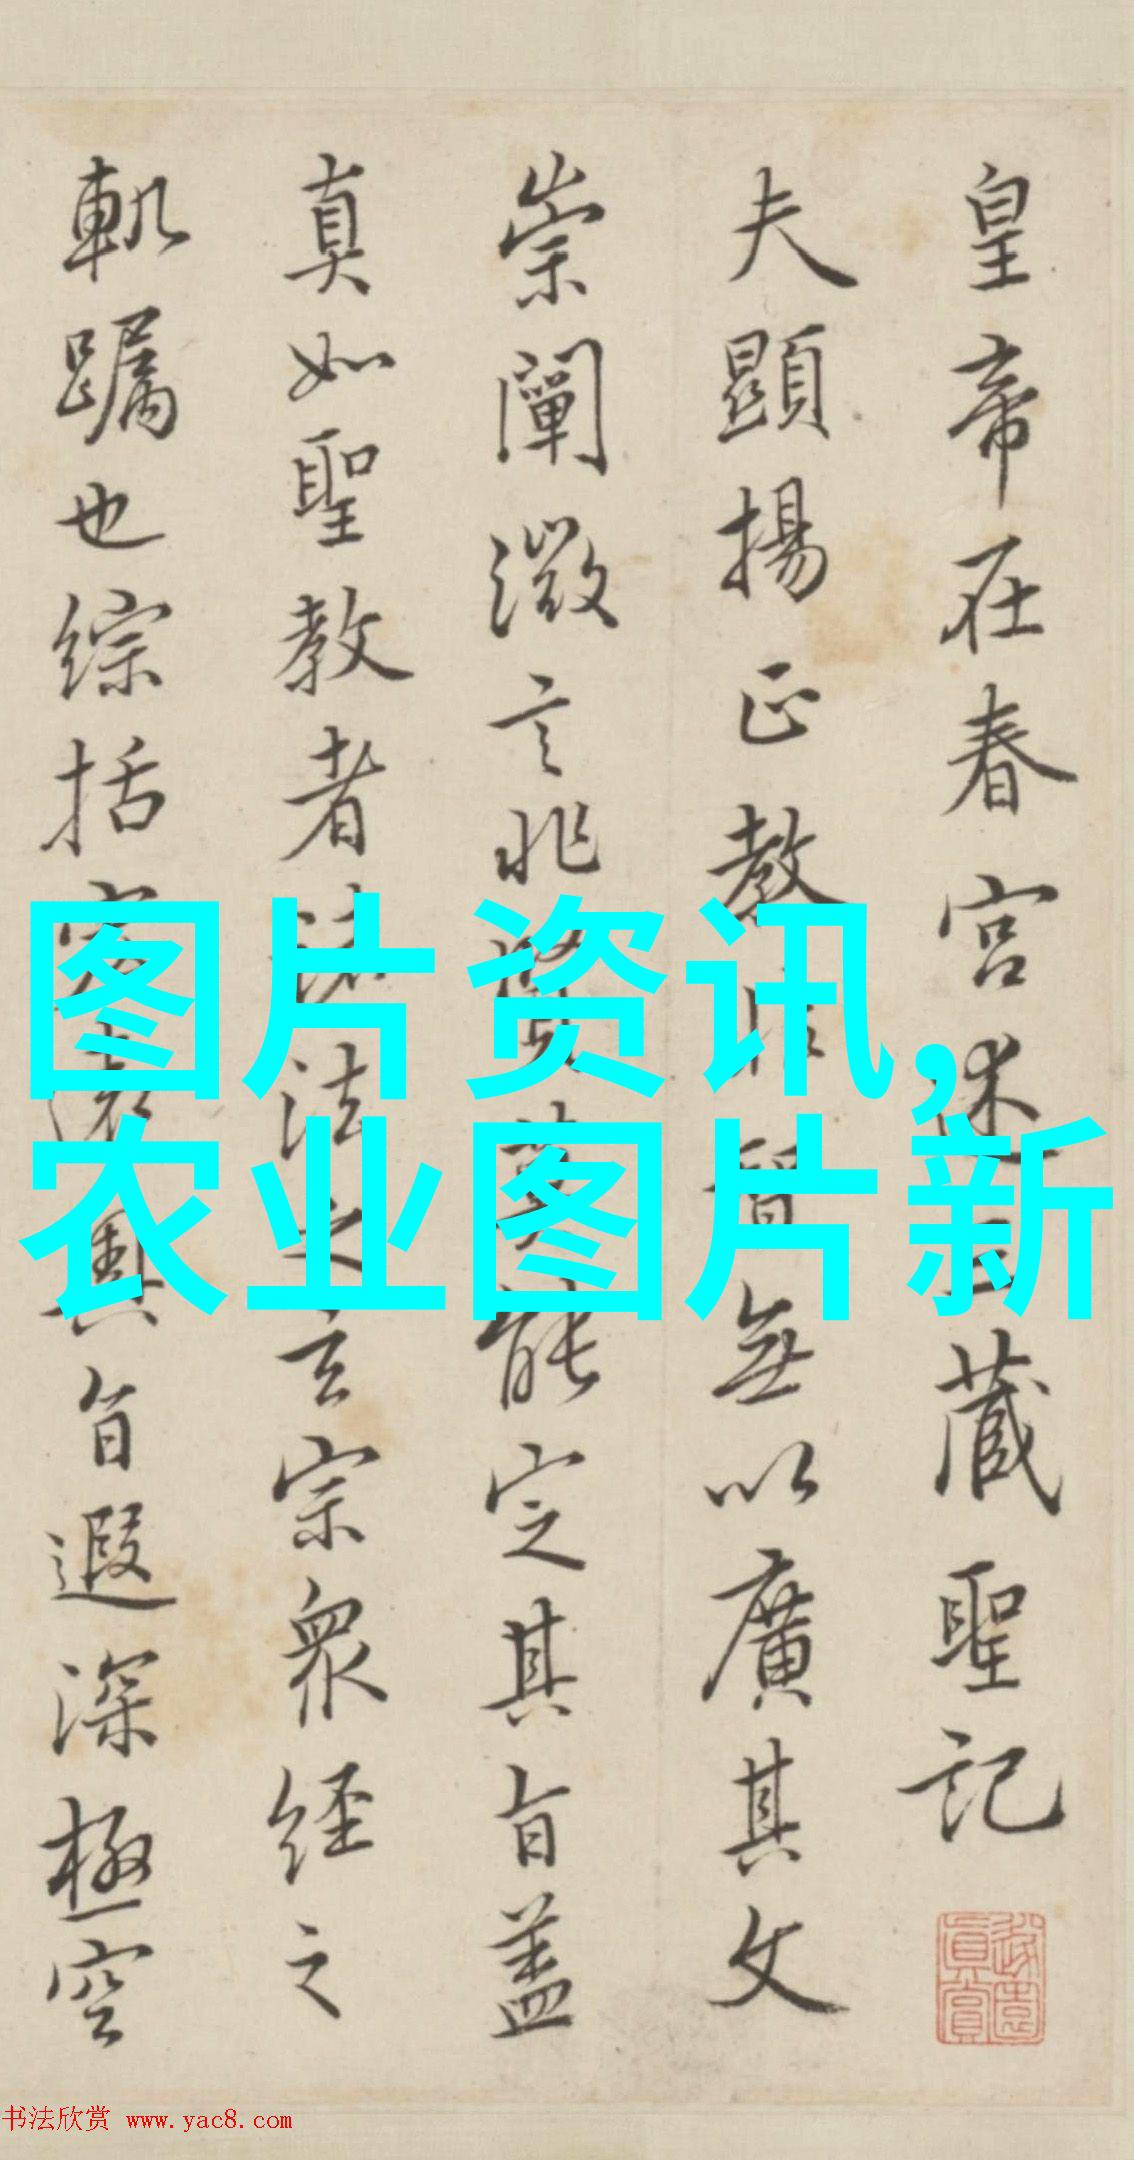 皇帝在春宮述三藏聖記
夫顯揚正教非智無以廣其文
崇闡微言非賢莫能定其旨盖
真如聖教者諸法之玄宗衆経之
軌躅也綜括宏遠奧旨遐深極空
图片资讯,
农业图片新
书法欣赏 www.yac8.com